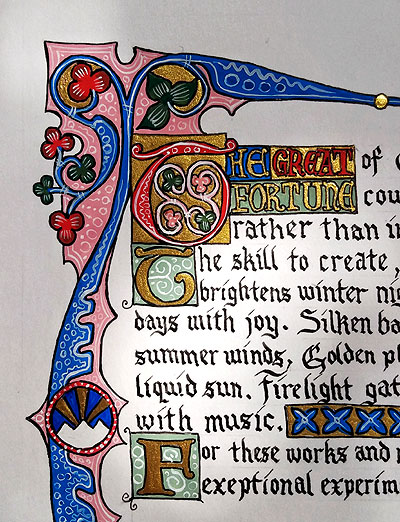 THE GREAT of
FORTUNE cou
rather than in
The skill to create,
brightens winter nig
days with joy. Silken ba
summer winds, Golden pl
liquid sun. Firelight gat
with music.
For these works and
exeptional experim